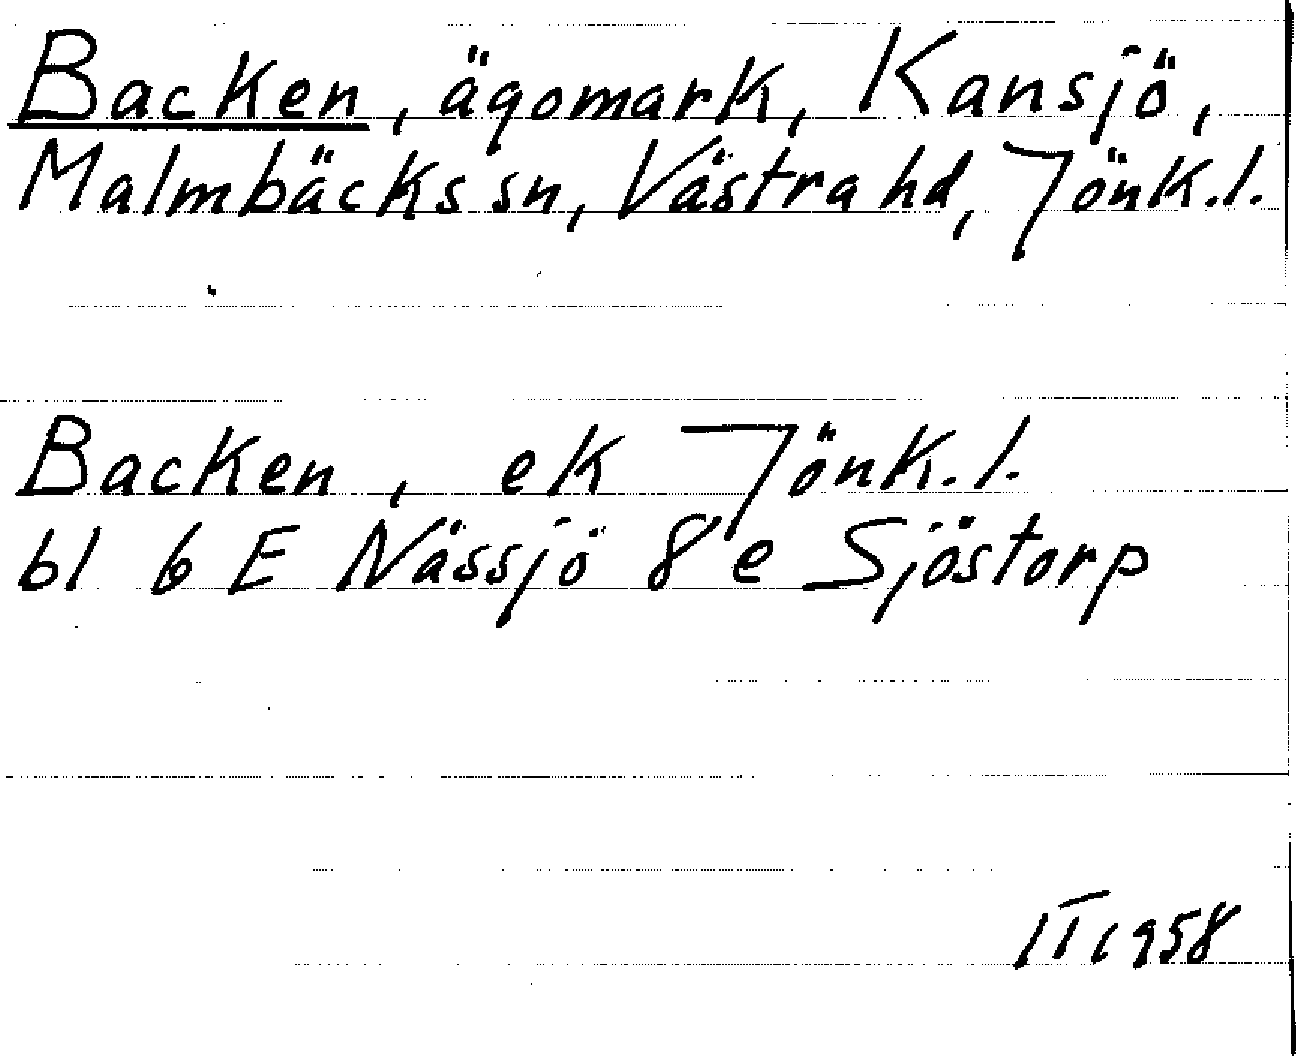 Backen, ägomark, Kansjö,
Malmbäcks sn, Västra hd, Jönk.l.
Backen, ek Jönk.l.
bl 6 E Nässjö 8 e Sjöstorp
IT 1958